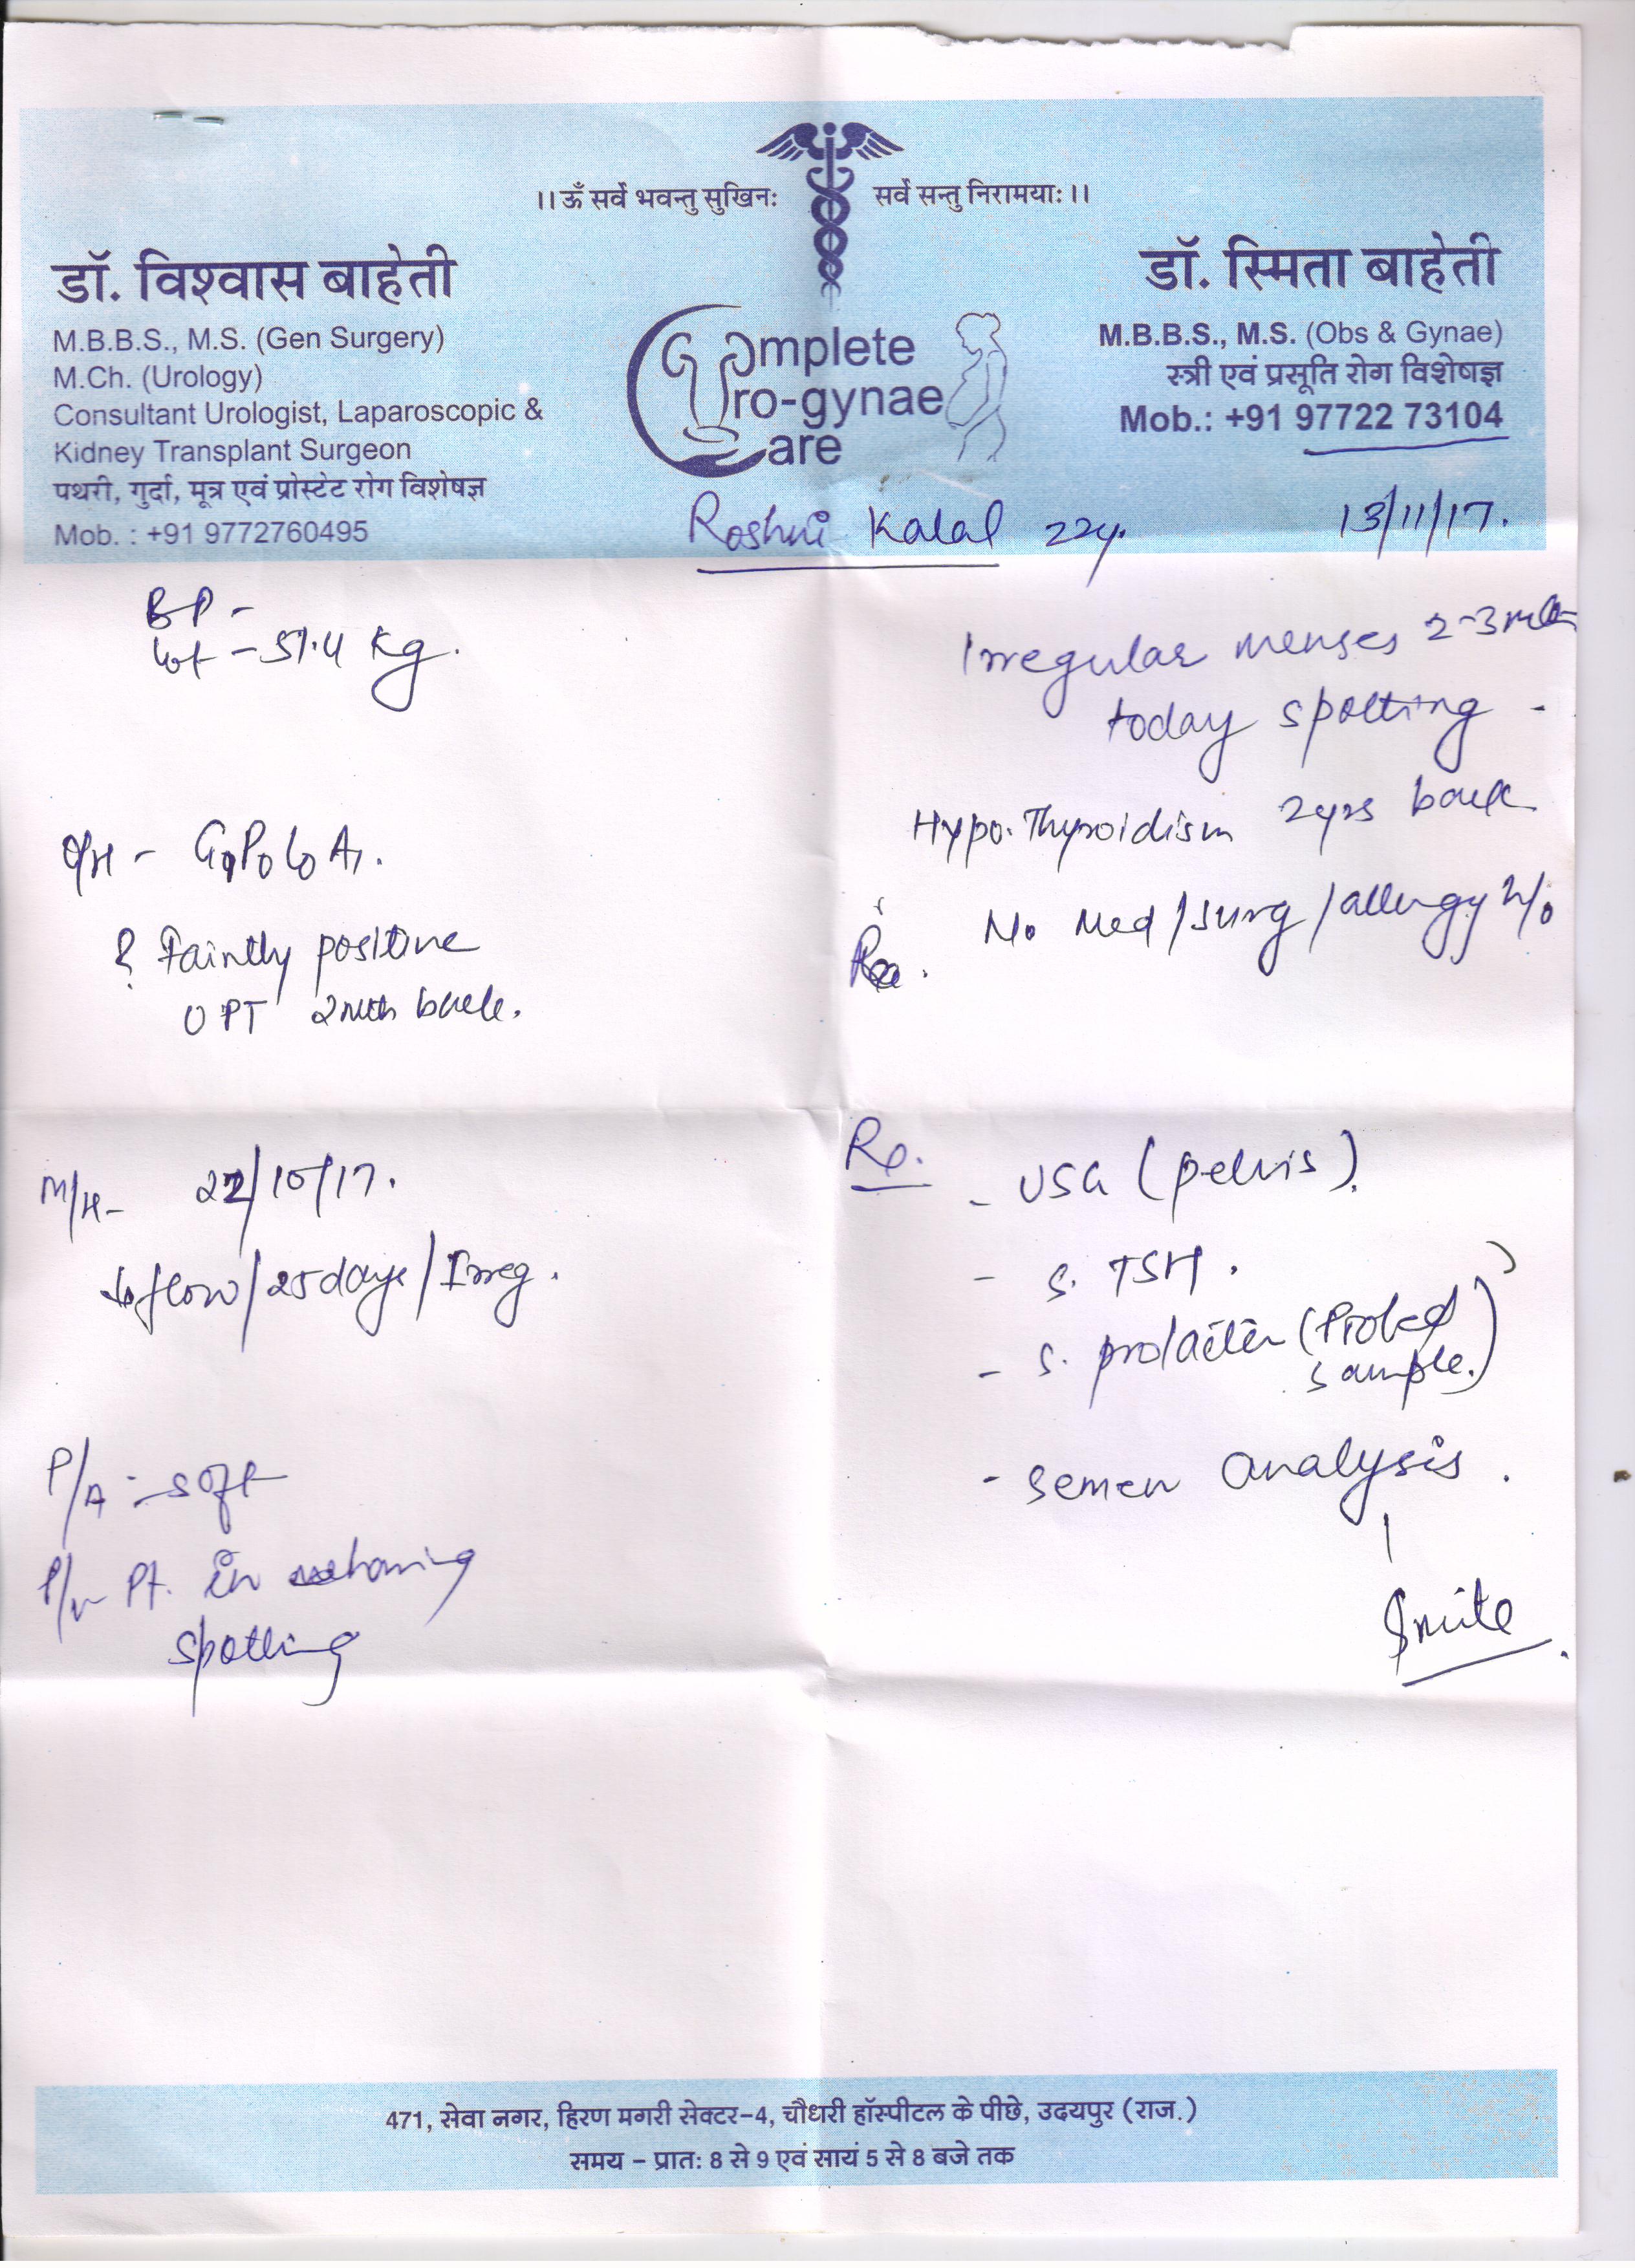 ।। ॐ सर्वे भवन्तु सुखिनः सर्वे सन्तु निरामयाः ।।
डॉ. विश्वास बाहेती
M.B.B.S., M.S. (Gen Surgery)
M.Ch. (Urology)
Consultant Urologist, Laparoscopic &
Kidney Transplant Surgeon
पथरी, गुर्दा, मूत्र एवं प्रोस्टेट रोग विशेषज्ञ
Mob. : +91 9772760495
Complete
Uro-gynae
Care
डॉ. स्मिता बाहेती
M.B.B.S., M.S. (Obs & Gynae)
स्त्री एवं प्रसूति रोग विशेषज्ञ
Mob.: +91 97722 73104
Roshni Kalal 22y. 13/11/17.
BP -
wt - 51.4 Kg.
Irregular menses 2-3
today spotting -
Hypo. Thyroidism 2yrs back
No Med/surg/allergy h/o
O/H - P0 L0 A1.
? Faintly positive
UPT 2mth back.
M/H - 22/10/17.
flow/25days/Irreg.
P/A - soft
P/v Pt. is having
spotting
Rx.
- USG (pelvis).
- S. TSH.
- S. prolactin (Pooled
sample.)
- semen analysis.
Smita
471, सेवा नगर, हिरण मगरी सेक्टर-4, चौधरी हॉस्पीटल के पीछे, उदयपुर (राज.)
समय - प्रातः 8 से 9 एवं सायं 5 से 8 बजे तक